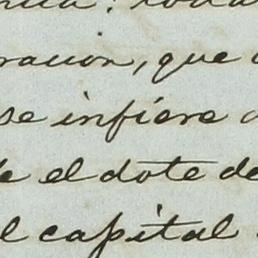 racion, que
se infiere
el dote de
l capital